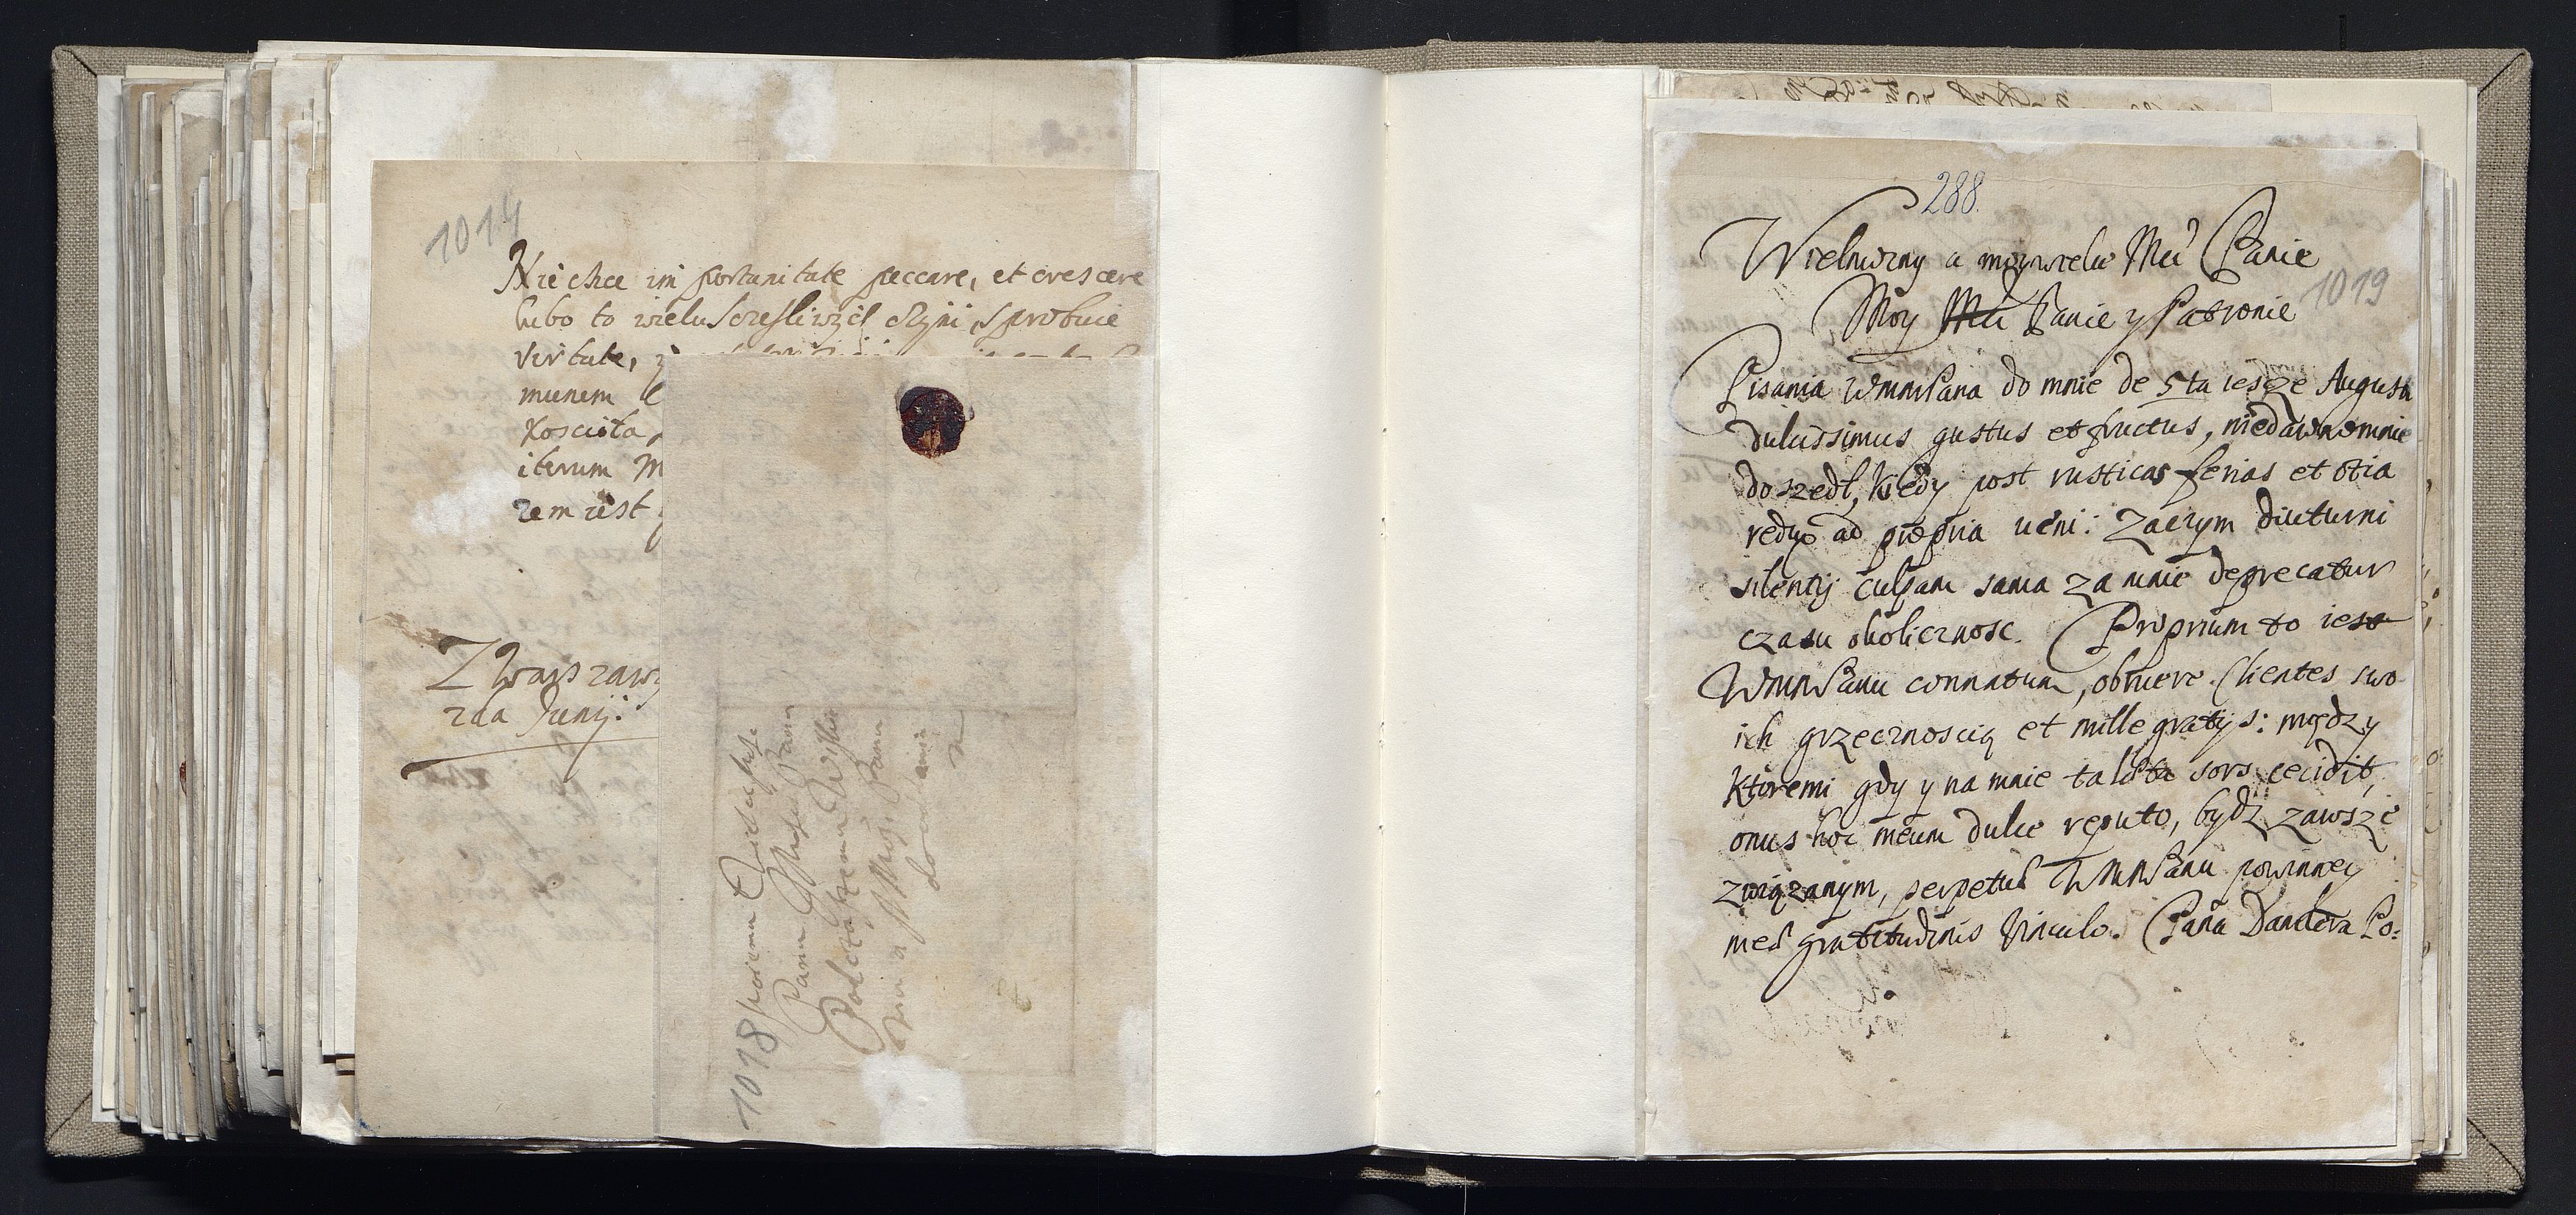 1014
Nie chce im portunitate peccare, et crescere
lubo to wielu sczesliwych czyni, sprobuie
virtute,
munem
Kosciola,
iterum M
rem iest
Z Warszawy
2da Junij.
1018
Panu
Panu
Panu
288.
Wielmozny a moj wielce Mci Panie
1019
Moy Mci Panie y Patronie
Pisania WMMPana do mnie de 5ta iescze Augusti
dulcissimus gustus et fructus, niedawno mnie
doszedł, kiedy post rusticas ferias et otia
redux ad propria veni: Zaczym diuturni
silentij culpam sama za mnie deprecatur
czasu okolicznosc. Proprium to iest
WMMPanu connatum, obruere Clientes swo
ich grzecznoscią et mille gratijs: między
ktoremi gdy y na mnie ta sors cecidit,
onus hoc meum dulce reputo, bydz zawsze
związanym, perpetuo WMMPanu powinney
meae gratitudinis vinculo. Pana Danckera Po: